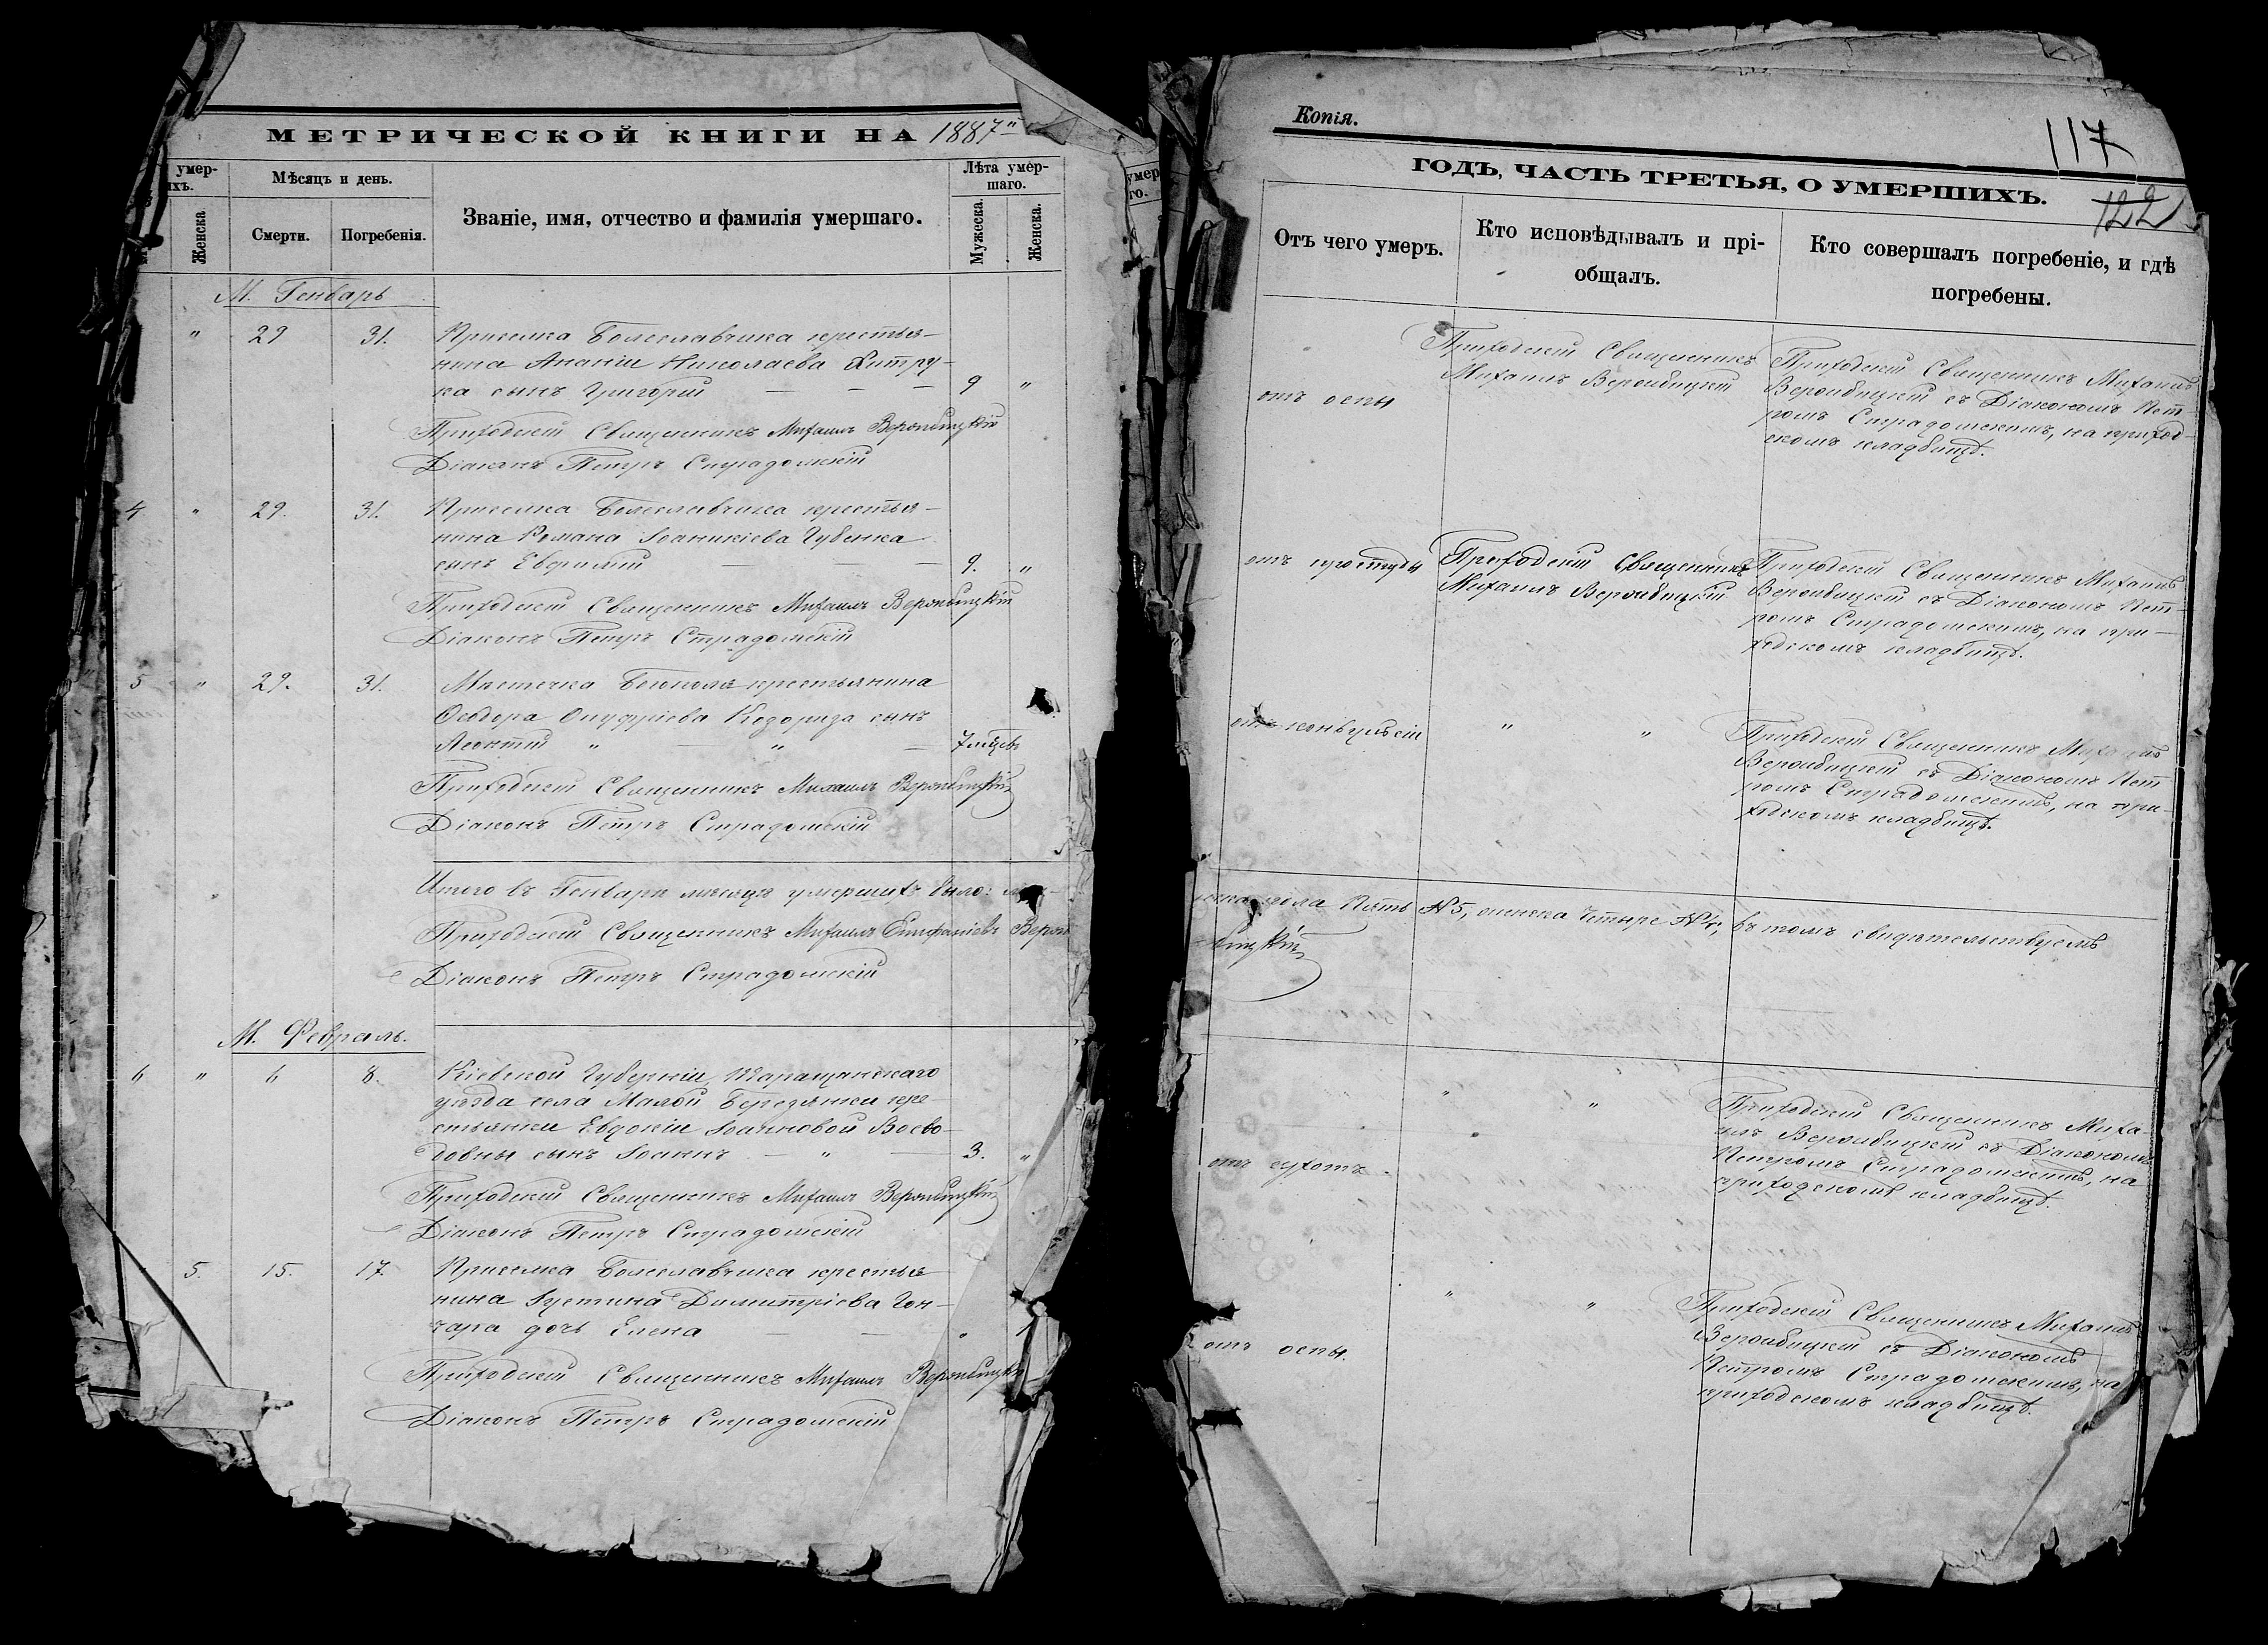 МЕТРИЧЕСКОЙ КНИГИ НА 1887й
умер-
ихъ.
Мѣсяцъ и день.
Званіе, имя, отчество и фамилія умершаго.
Лѣта умер-
шаго.
Женска.
Смерти.
Погребенія.
Мужеска.
Женска.
М. Генварь
" 29 31. Приселка Болеславчика крестья-
нина Ананіи Николаева Хитру-
ка сынъ Григорій — — — 9 "
Приходскій Священникъ Михаилъ Вержбицкій
Діаконъ Петръ Страдомскій
4 " 29. 31. Приселка Болеславчика крестья-
нина Романа Іоаникіева Губенка
сынъ Евфимій — — — 9. "
Приходскій Священникъ Михаилъ Вержбицкій
Діаконъ Петръ Страдомскій
5 " 29. 31. Мѣстечка крестьянина
Ѳеодора Онуфріева Козориза сынъ
Леонтій " — " — 7 мѣцвъ
Приходскій Священникъ Михаилъ Вержбицкій
Діаконъ Петръ Страдомскій
Итого въ Генварѣ мѣсяцѣ умершихъ было: муж-
Приходскій Священникъ Михаилъ Епифаніевъ Верж
Діаконъ Петръ Страдомскій
М. Февраль.
6 " 6 8. Кіевской Губерніи, Таращанскаго
уѣзда села Малой Березянки кре-
стьянки Евдокіи Іоанновой Воево-
довны сынъ Іоаннъ — " — 3. "
Приходскій Священникъ Михаилъ Вержбицкій
Діаконъ Петръ Страдомскій
5. 15. 17. Приселка Болеславчика крестья-
нина Іустина Димитріева Гон-
чара дочь Елена — — " 1
Приходскій Священникъ Михаилъ Вержбицкій
Діаконъ Петръ Страдомскій
умер
го.
Копія.
117
ГОДЪ, ЧАСТЬ ТРЕТЬЯ, О УМЕРШИХЪ.
122
Отъ чего умеръ.
Кто исповѣдывалъ и прі-
общалъ.
Кто совершалъ погребеніе, и гдѣ
погребены.
отъ оспы
Приходскій Священникъ
Михаилъ Вержбицкій
Приходскій Священникъ Михаилъ
Вержбицкій съ Діакономъ Пет-
ромъ Страдомскимъ, на приход-
скомъ кладбищѣ.
отъ простуды
Приходскій Священникъ
Михаилъ Вержбицкій
Приходскій Священникъ Михаилъ
Вержбицкій съ Діакономъ Пет-
ромъ Страдомскимъ, на при-
ходскомъ кладбищѣ.
отъ конвульсіи " "
Приходскій Священникъ Михаилъ
Вержбицкій съ Діакономъ Пет
ромъ Страдомскимъ, на при-
ходскомъ кладбищѣ.
ска пола Пять №5, женска Четыре №4; въ томъ свидѣтельствуемъ
бицкій
отъ сухотъ. " "
Приходскій Священникъ Миха-
илъ Вержбицкій съ Діакономъ
Петромъ Страдомскимъ, на
приходскомъ кладбищѣ.
отъ оспы. " "
Приходскій Священникъ Михаилъ
Вержбицкій съ Діакономъ
Петромъ Страдомскимъ, на
приходскомъ кладбищѣ.